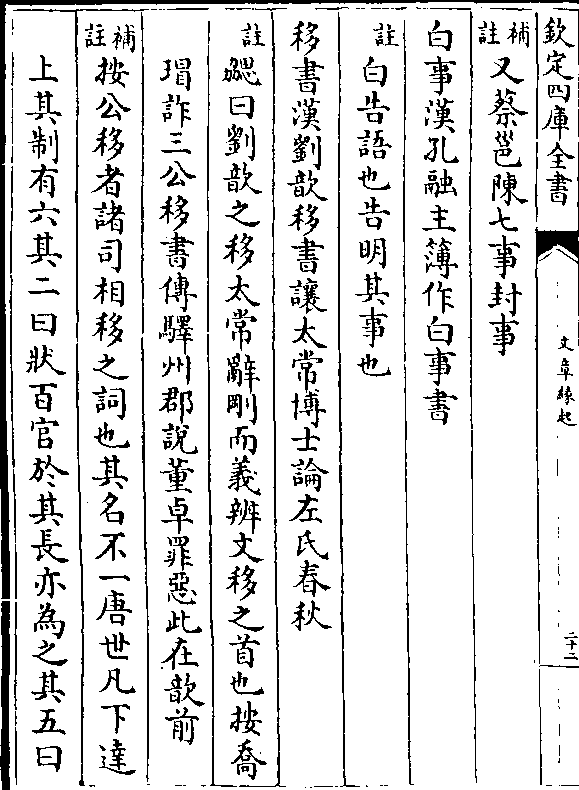 欽定四庫全書
文章緣起
二十二
補註又蔡邕陳七事封事
白事漢孔融主簿作白事書
註白告語也告明其事也
移書漢劉歆移書讓太常博士論左氏春秋
註勰曰劉歆之移太常辭剛而義辨文移之首也按喬
瑁詐三公移書傳驛州郡說董卓罪惡此在歆前
補註按公移者諸司相移之詞也其名不一唐世凡下達
上其制有六其二曰狀百官於其長亦為之其五曰